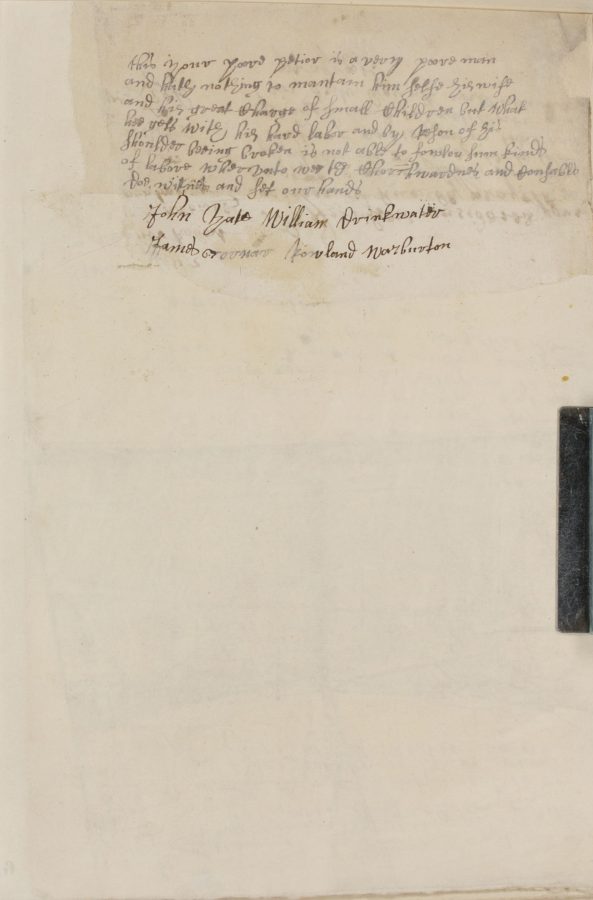 this your poore petior is a very poore man
and hath nothing to mantain him selfe his wife
and his great Charge of small Children but what
hee gets with his hard labor and by reson of his
shoulder beeing broken is not able to som kinds
of labore wherunto wee the Churchwardnes and Constables
doe witnes and set our hands
John Yate William Drinkwater
James Rowland Warburton